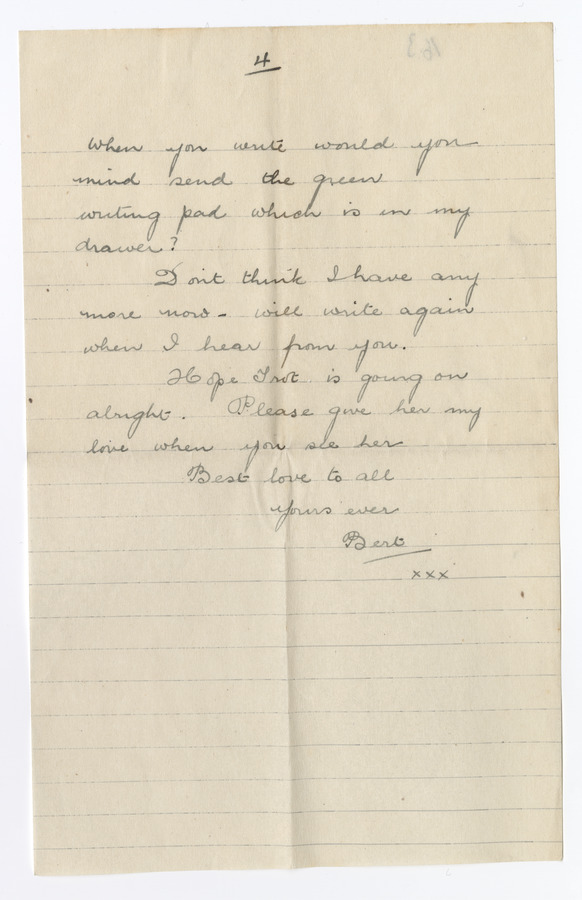 4
163
When you write would you
mind send the green
writing pad which is in my
drawer?
Dont think I have any
more now - will write again
when I hear from you.
Hope Trot is going on
alright. Please give her my
love when you see her
Best love to all
yours ever
Bert
xxx